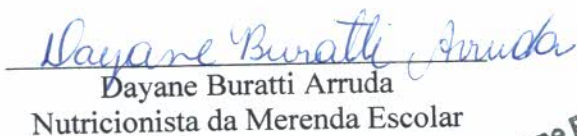 Dayane Buratti Arruda
Dayane Buratti Arruda
Nutricionista da Merenda Escolar